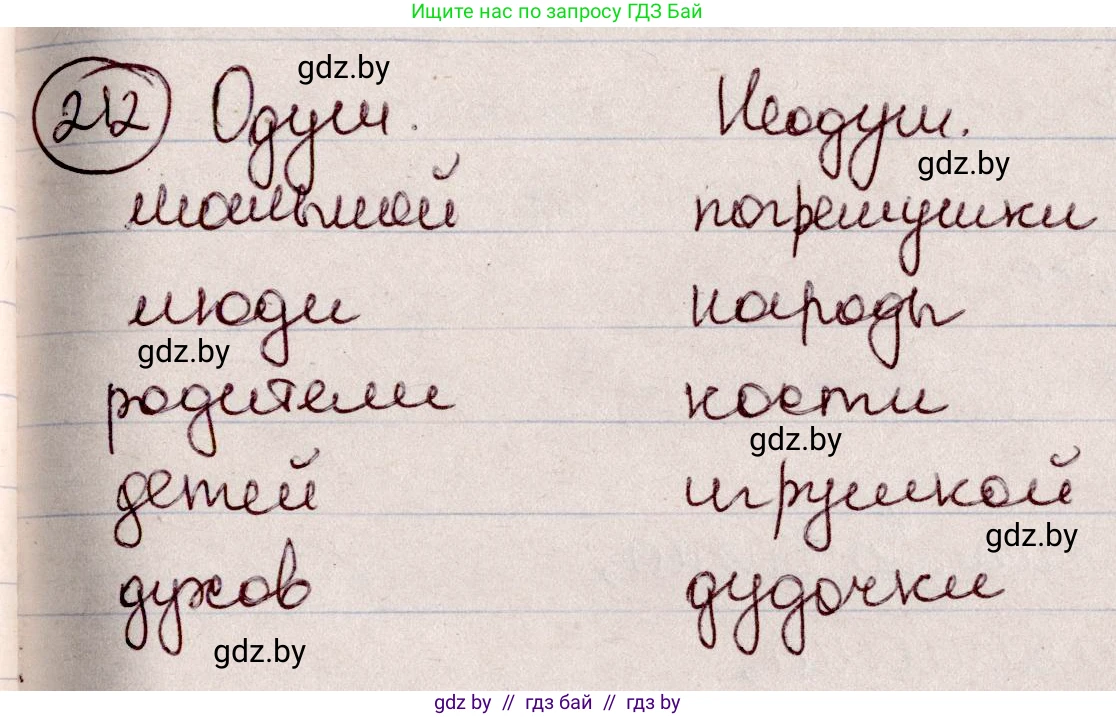 Ищите нас по запросу ГДЗ Бай
gdz.by
212 Одуш. Неодуш.
gdz.by
малышей погремушки
люди народы
gdz.by
родители кости
gdz.by
детей игрушкой
gdz.by
духов дудочки
gdz.by
gdz by // гдз бай // гдз by